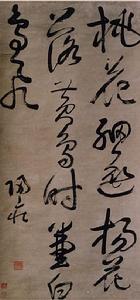 桃花細逐楊花
落黃鳥時兼白
鳥飛
歸莊